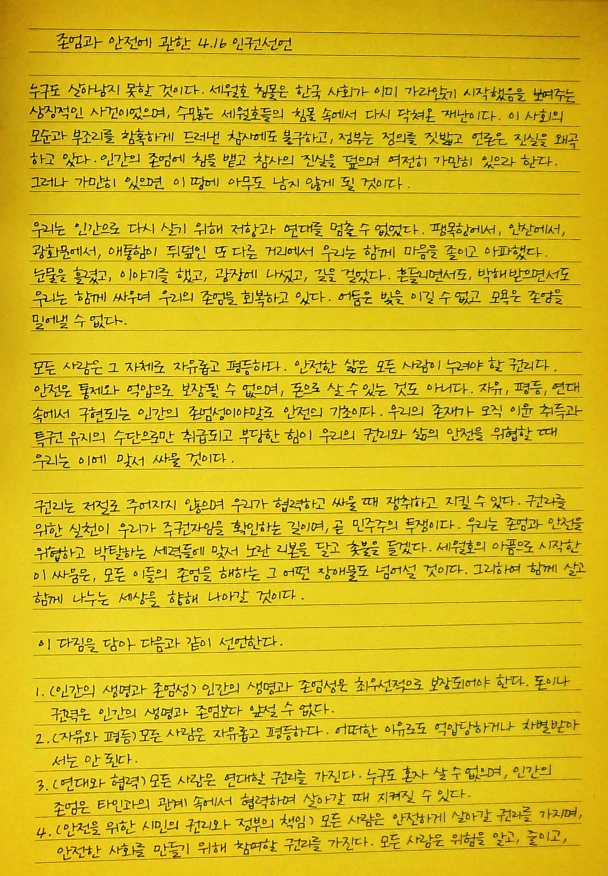 존엄과 안전에 관한 4.16 인권선언
누구도 살아남지 못할 것이다. 세월호 침몰은 한국 사회가 이미 가라앉기 시작했음을 보여주는
상징적인 사건이었으며, 수많은 세월호들의 침몰 속에서 다시 닥쳐온 재난이다. 이 사회의
모순과 부조리를 참혹하게 드러낸 참사에도 불구하고, 정부는 정의를 짓밟고 언론은 진실을 왜곡
하고 있다. 인간의 존엄에 침을 뱉고 참사의 진실을 덮으며 여전히 가만히 있으라 한다.
그러나 가만히 있으면 이 땅에 아무도 남지 않게 될 것이다.
우리는 인간으로 다시 살기 위해 저항과 연대를 멈출 수 없었다. 팽목항에서, 안산에서,
광화문에서, 애통함이 뒤덮인 또 다른 거리에서 우리는 함께 마음을 졸이고 아파했다.
눈물을 흘렸고, 이야기를 했고, 광장에 나섰고, 길을 걸었다. 흔들리면서도, 박해받으면서도
우리는 함께 싸우며 우리의 존엄을 회복하고 있다. 어둠은 빛을 이길 수 없고 모욕은 존엄을
밀어낼 수 없다.
모든 사람은 그 자체로 자유롭고 평등하다. 안전한 삶은 모든 사람이 누려야 할 권리다.
안전은 통제와 억압으로 보장될 수 없으며, 돈으로 살 수 있는 것도 아니다. 자유, 평등, 연대
속에서 구현되는 인간의 존엄성이야말로 안전의 기초이다. 우리의 존재가 오직 이윤 취득과
특권 유지의 수단으로만 취급되고 부당한 힘이 우리의 권리와 삶의 안전을 위협할 때
우리는 이에 맞서 싸울 것이다.
권리는 저절로 주어지지 않으며 우리가 협력하고 싸울 때 쟁취하고 지킬 수 있다. 권리를
위한 실천이 우리가 주권자임을 확인하는 길이며, 곧 민주주의 투쟁이다. 우리는 존엄과 안전을
위협하고 박탈하는 세력들에 맞서 노란 리본을 달고 촛불을 들겠다. 세월호의 아픔으로 시작한
이 싸움은, 모든 이들의 존엄을 해하는 그 어떤 장애물도 넘어설 것이다. 그리하여 함께 살고
함께 나누는 세상을 향해 나아갈 것이다.
이 다짐을 담아 다음과 같이 선언한다.
1. (인간의 생명과 존엄성) 인간의 생명과 존엄성은 최우선적으로 보장되어야 한다. 돈이나
권력은 인간의 생명과 존엄보다 앞설 수 없다.
2. (자유와 평등) 모든 사람은 자유롭고 평등하다. 어떠한 이유로도 억압당하거나 차별받아
서는 안 된다.
3. (연대와 협력) 모든 사람은 연대할 권리를 가진다. 누구도 혼자 살 수 없으며, 인간의
존엄은 타인과의 관계 속에서 협력하며 살아갈 때 지켜질 수 있다.
4. (안전을 위한 시민의 권리와 정부의 책임) 모든 사람은 안전하게 살아갈 권리를 가지며,
안전한 사회를 만들기 위해 참여할 권리를 가진다. 모든 사람은 위험을 알고, 줄이고,